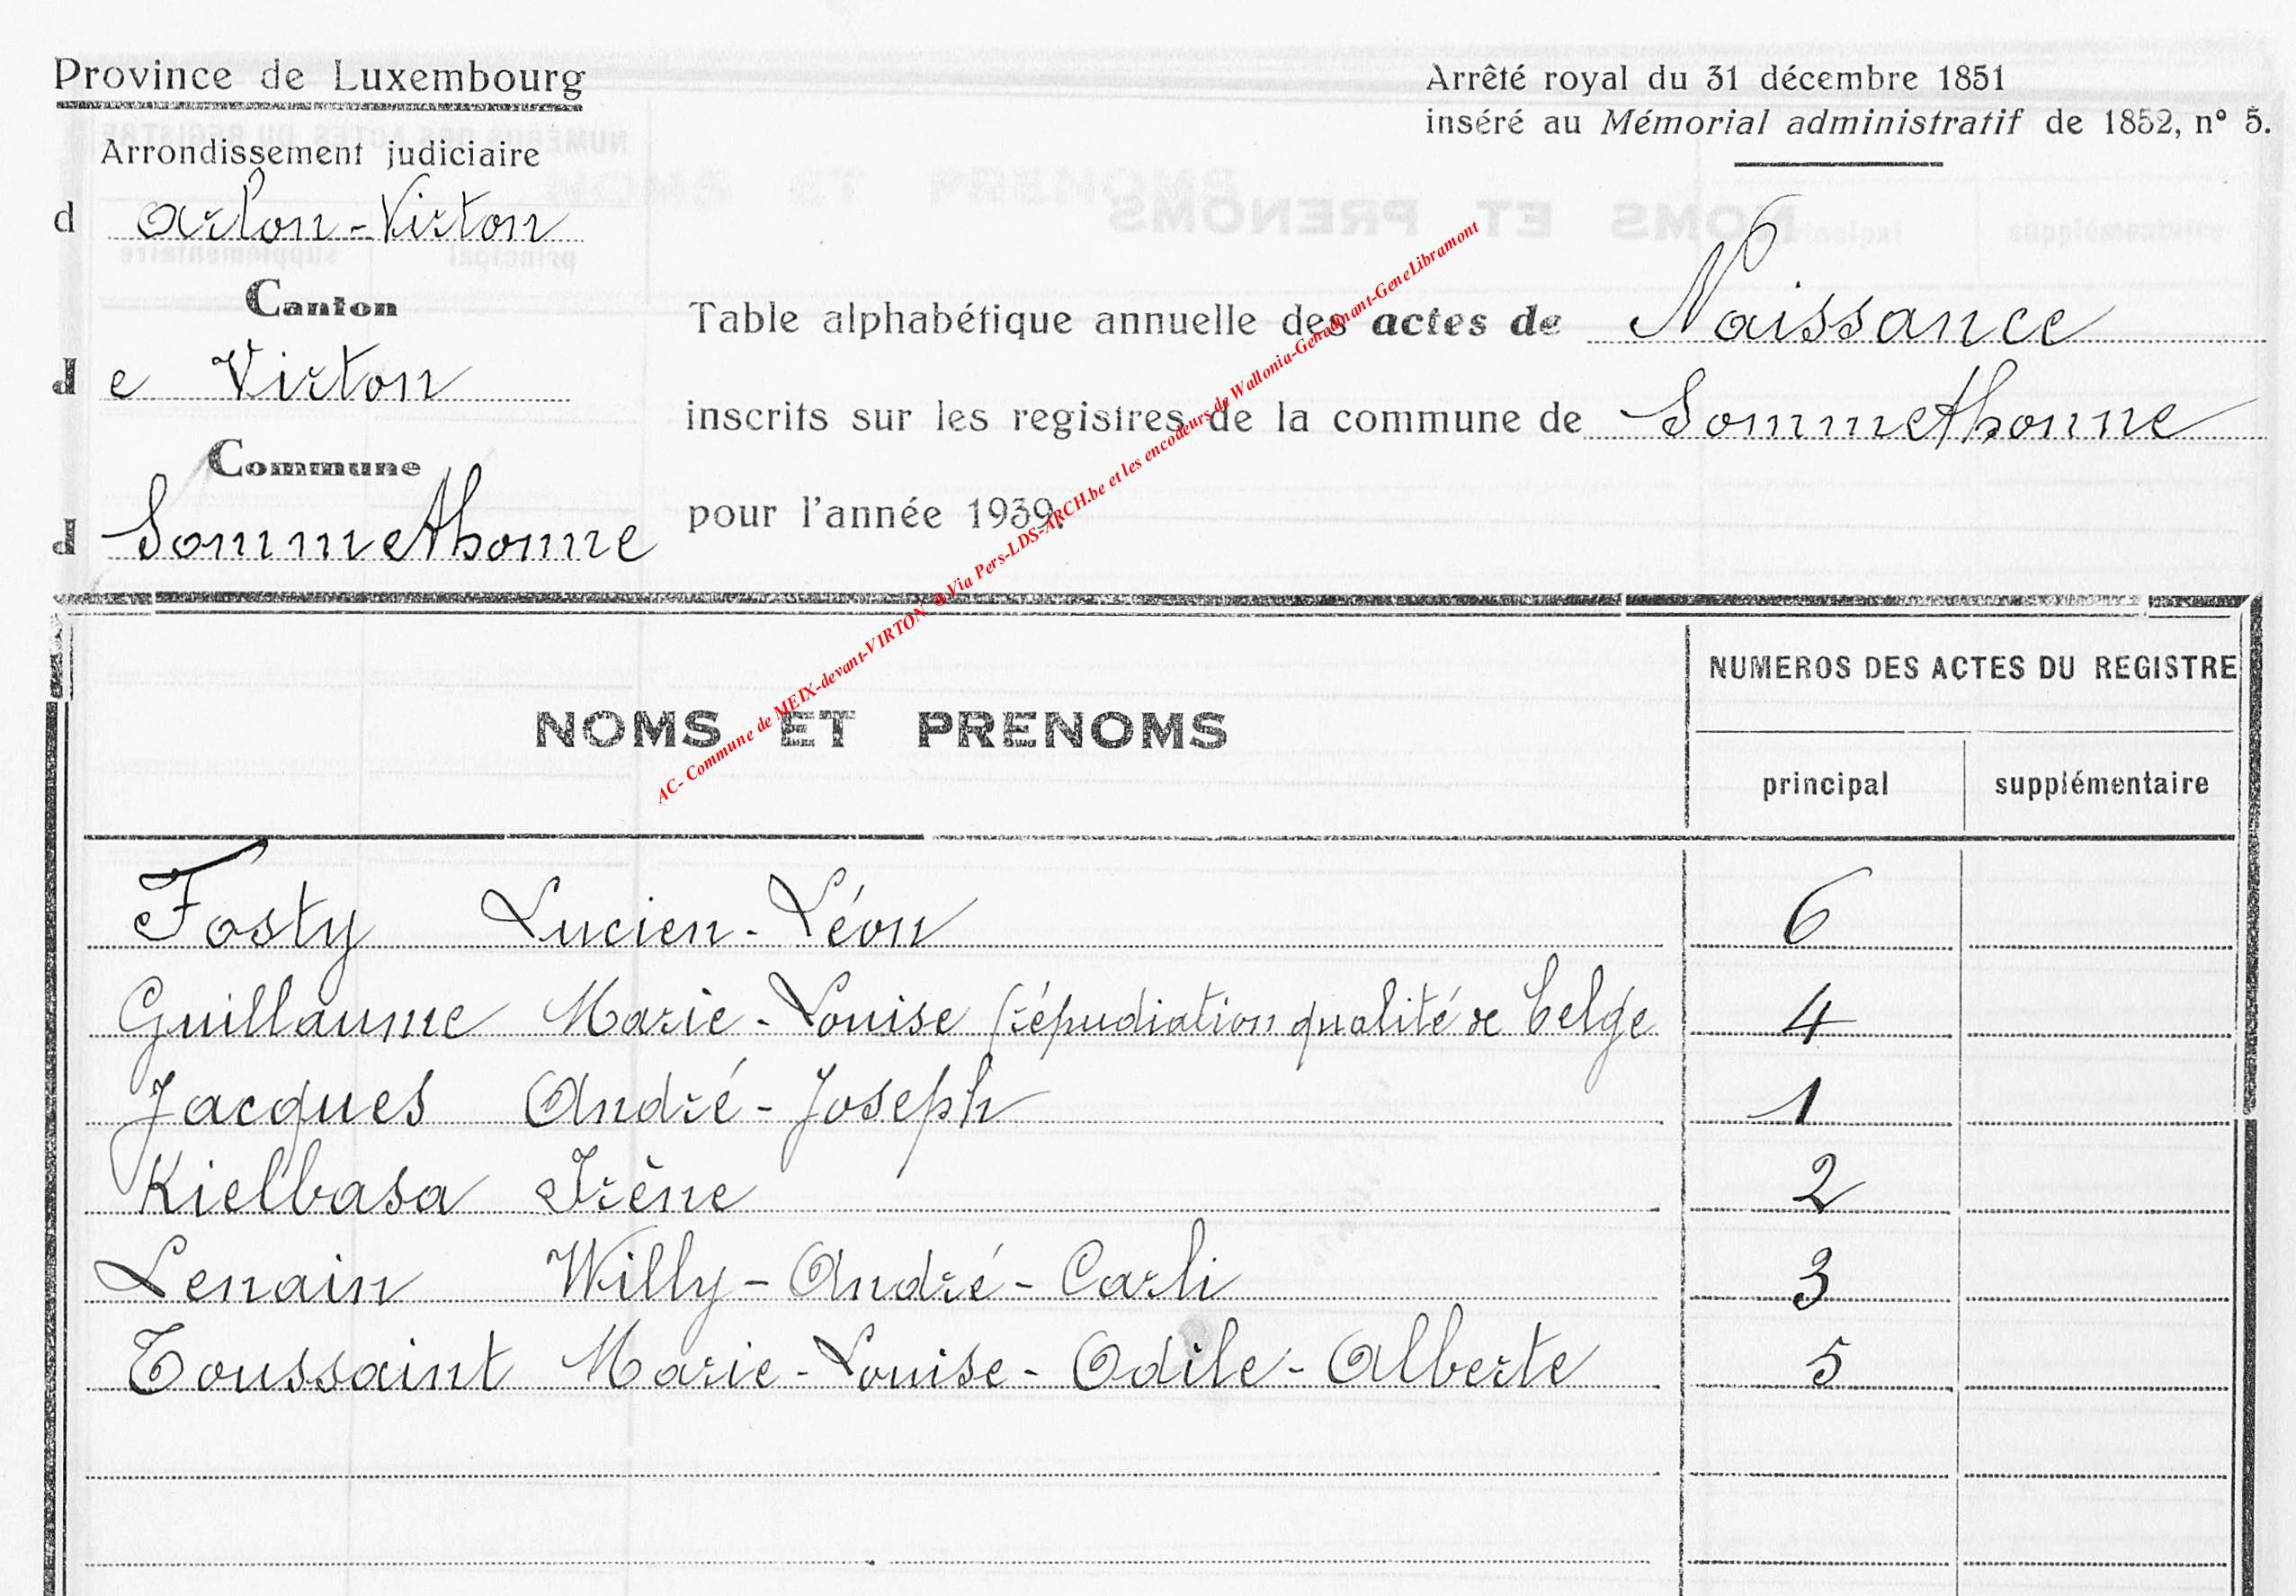 Province de Luxembourg
Arrondissement judiciaire
d Arlon-Virton
Canton
d e Virton
Commune
d Sommethonne
Arrêté royal du 31 décembre 1851
inséré au Mémorial administratif de 1852, n° 5.
Table alphabétique annuelle des actes de Naissance
inscrits sur les registres de la commune de Sommethonne
pour l'année 1939.
AC- Commune de MEIX-devant-VIRTON @Via Pers-LDS-ARCH.be et les encodeurs de Wallonia-Genadinant-GeneLibramont
NOMS ET PRENOMS
NUMEROS DES ACTES DU REGISTRE
principal supplémentaire
Fosty Lucien-Léon 6
Guillaume Marie-Louise (répudiation qualité de belge 4
Jacques André-Joseph 1
Kielbasa Irène 2
Lenain Willy-André-Carli 3
Toussaint Marie-Louise-Odile-Alberte 5